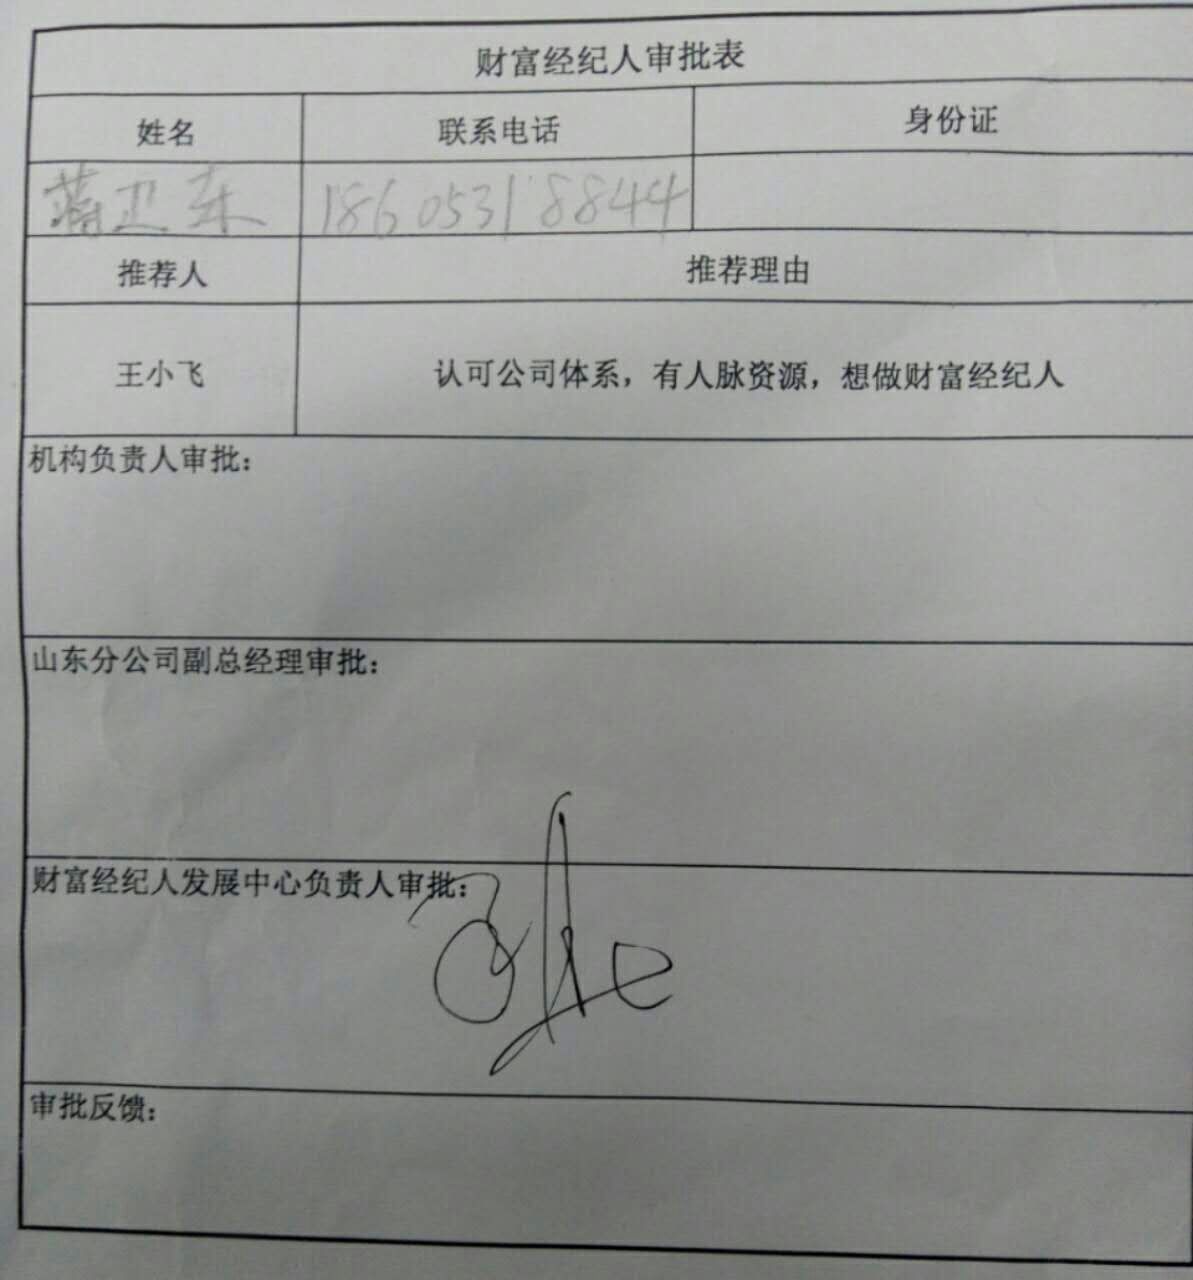 财富经纪人审批表
姓名 联系电话 身份证
蒋卫东 18605318844
推荐人 推荐理由
王小飞 认可公司体系，有人脉资源，想做财富经纪人
机构负责人审批：
山东分公司副总经理审批：
财富经纪人发展中心负责人审批：
审批反馈：